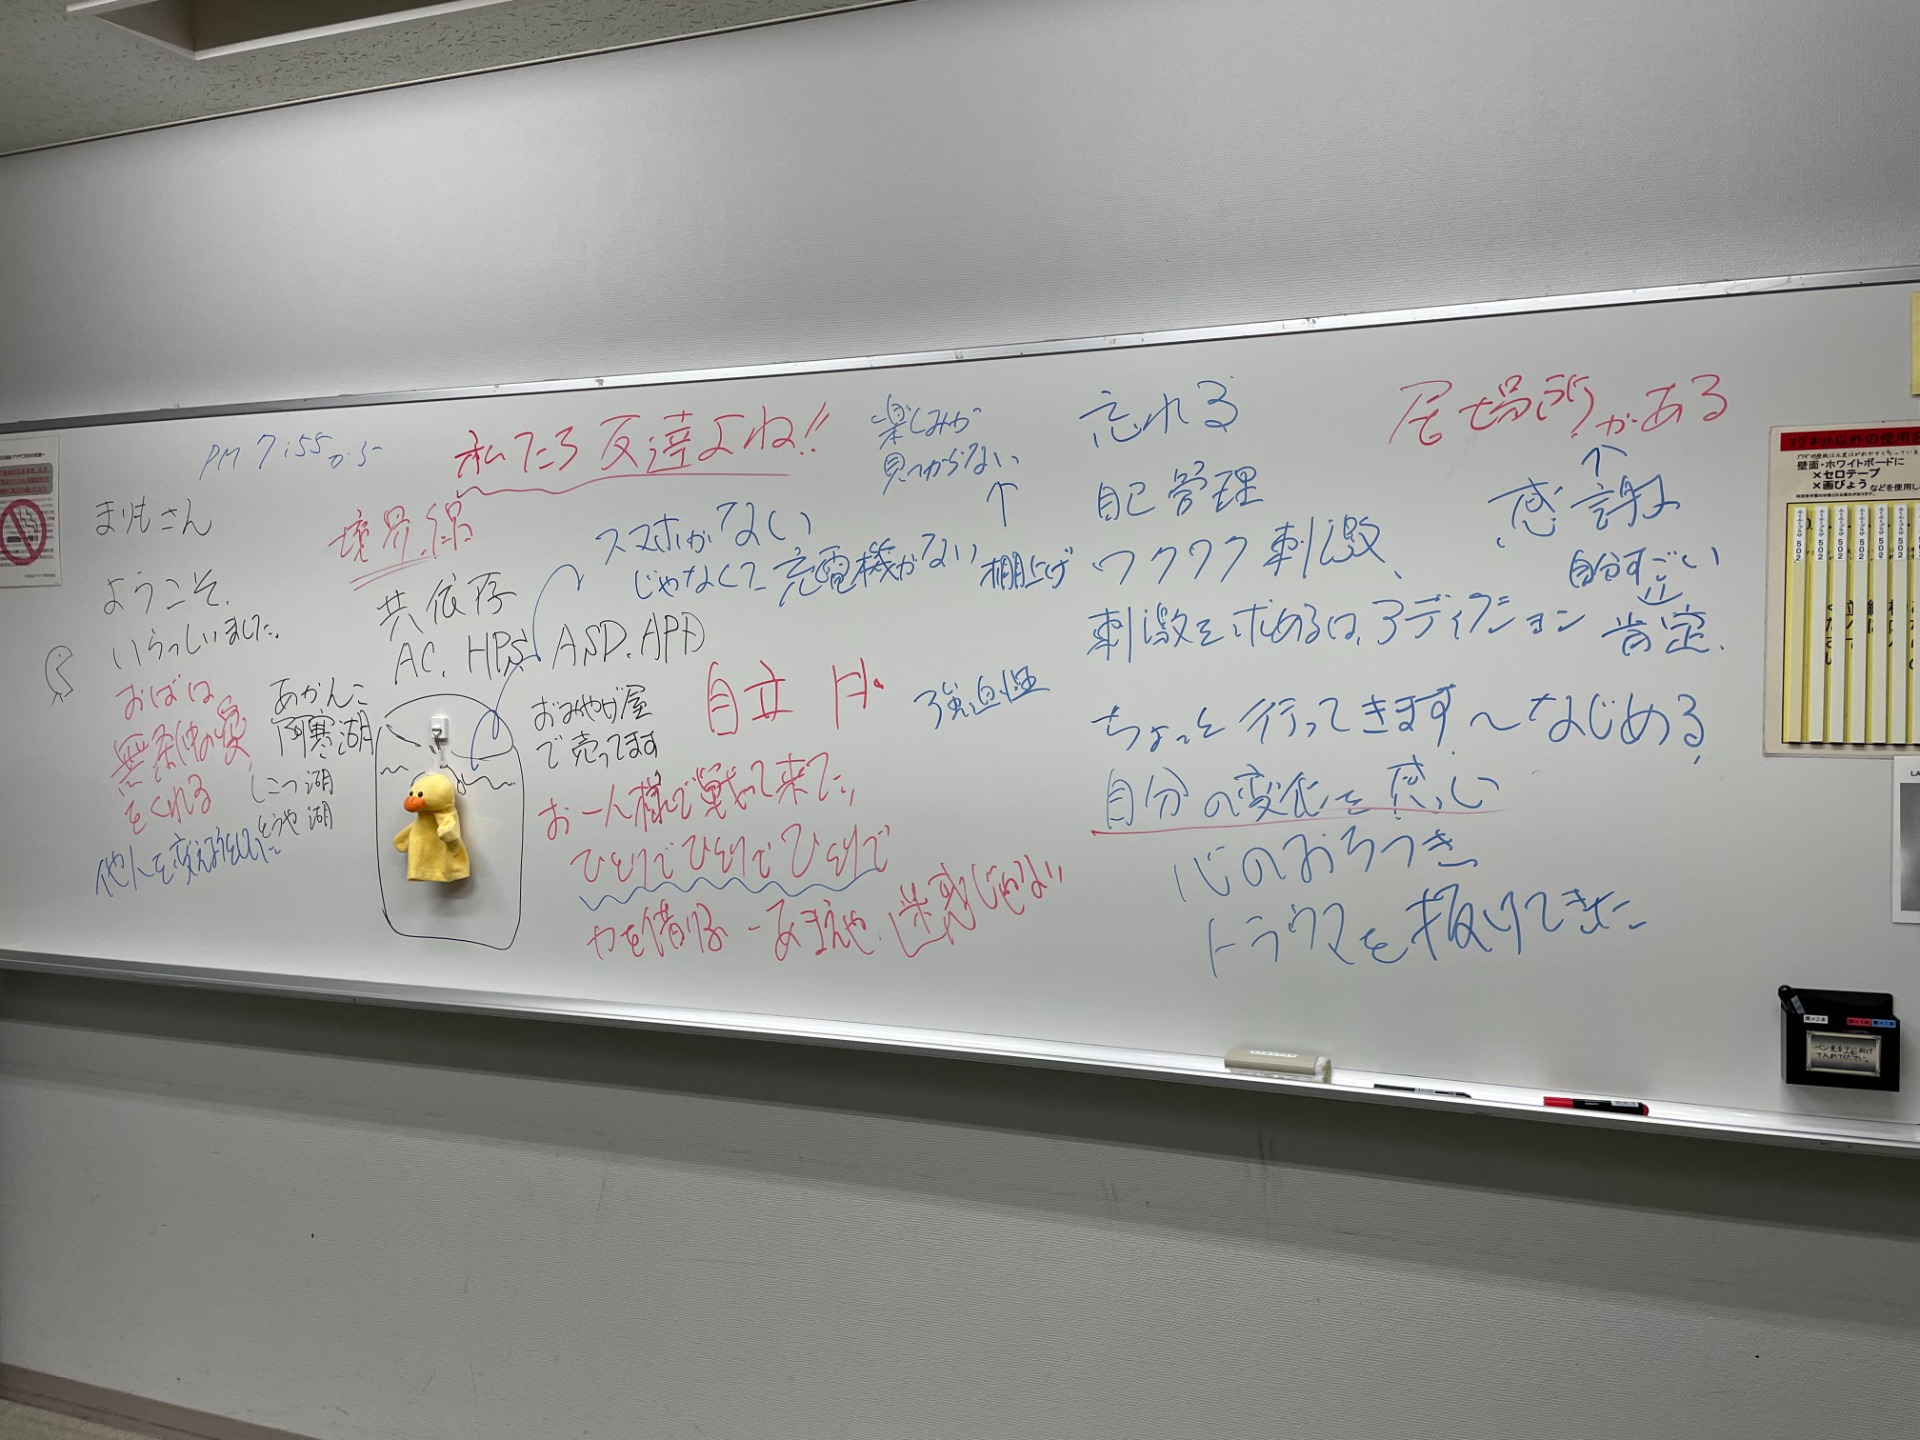 PM 7:55
まりもさん
ようこそ.
いらっしいました.
おばは
無条件の愛
をくれる
他人を変えようとした
あかんこ
阿寒湖
しこつ湖
とうや湖
私たち友達よね!!
境界線
共依存
AC. HPS. ASD. APD
おみやげ屋
で売ってます
スマホがない
じゃなくて充電機がない
楽しみが
見つからない
↑
棚上げ
自立
強迫性
お一人様で戦って来た
ひとりでひとりでひとりで
力を借りる
迷惑じゃない
忘れる
自己管理
ワクワク 刺激
刺激を求めるは、アディクション
ちょっと行ってきます〜なじめる
自分の変化を感じ
心のおちつき
トラウマを抜けてきた
居場所がある
↑
感謝
自分すごい
肯定.
マグネット以外の使用を
壁面・ホワイトボードに
×セロテープ
×画びょう などを使用し
502
502
502
502
502
502
ペン先を下に向け
て入れてください。